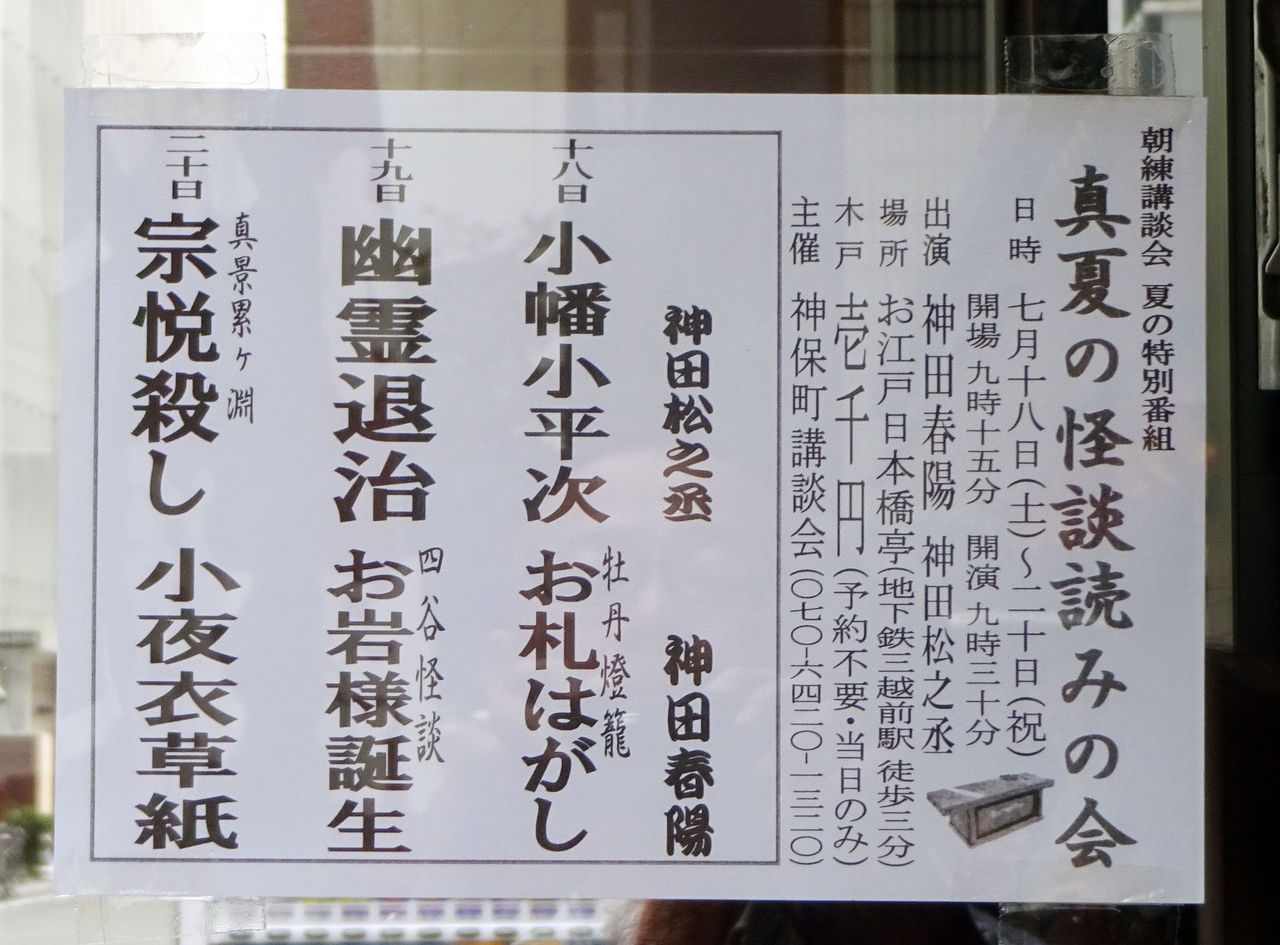 朝練講談会 夏の特別番組
真夏の怪談読みの会
日時 七月十八日(土)〜二十日(祝)
開場 九時十五分 開演 九時三十分
出演 神田春陽 神田松之丞
場所 お江戸日本橋亭(地下鉄三越前駅 徒歩三分)
木戸 壱千円(予約不要・当日のみ)
主催 神保町講談会(〇七〇-六四二〇-一三二〇)
神田松之丞 神田春陽
牡丹燈籠
十八日 小幡小平次 お札はがし
四谷怪談
十九日 幽霊退治 お岩様誕生
真景累ヶ淵
二十日 宗悦殺し 小夜衣草紙